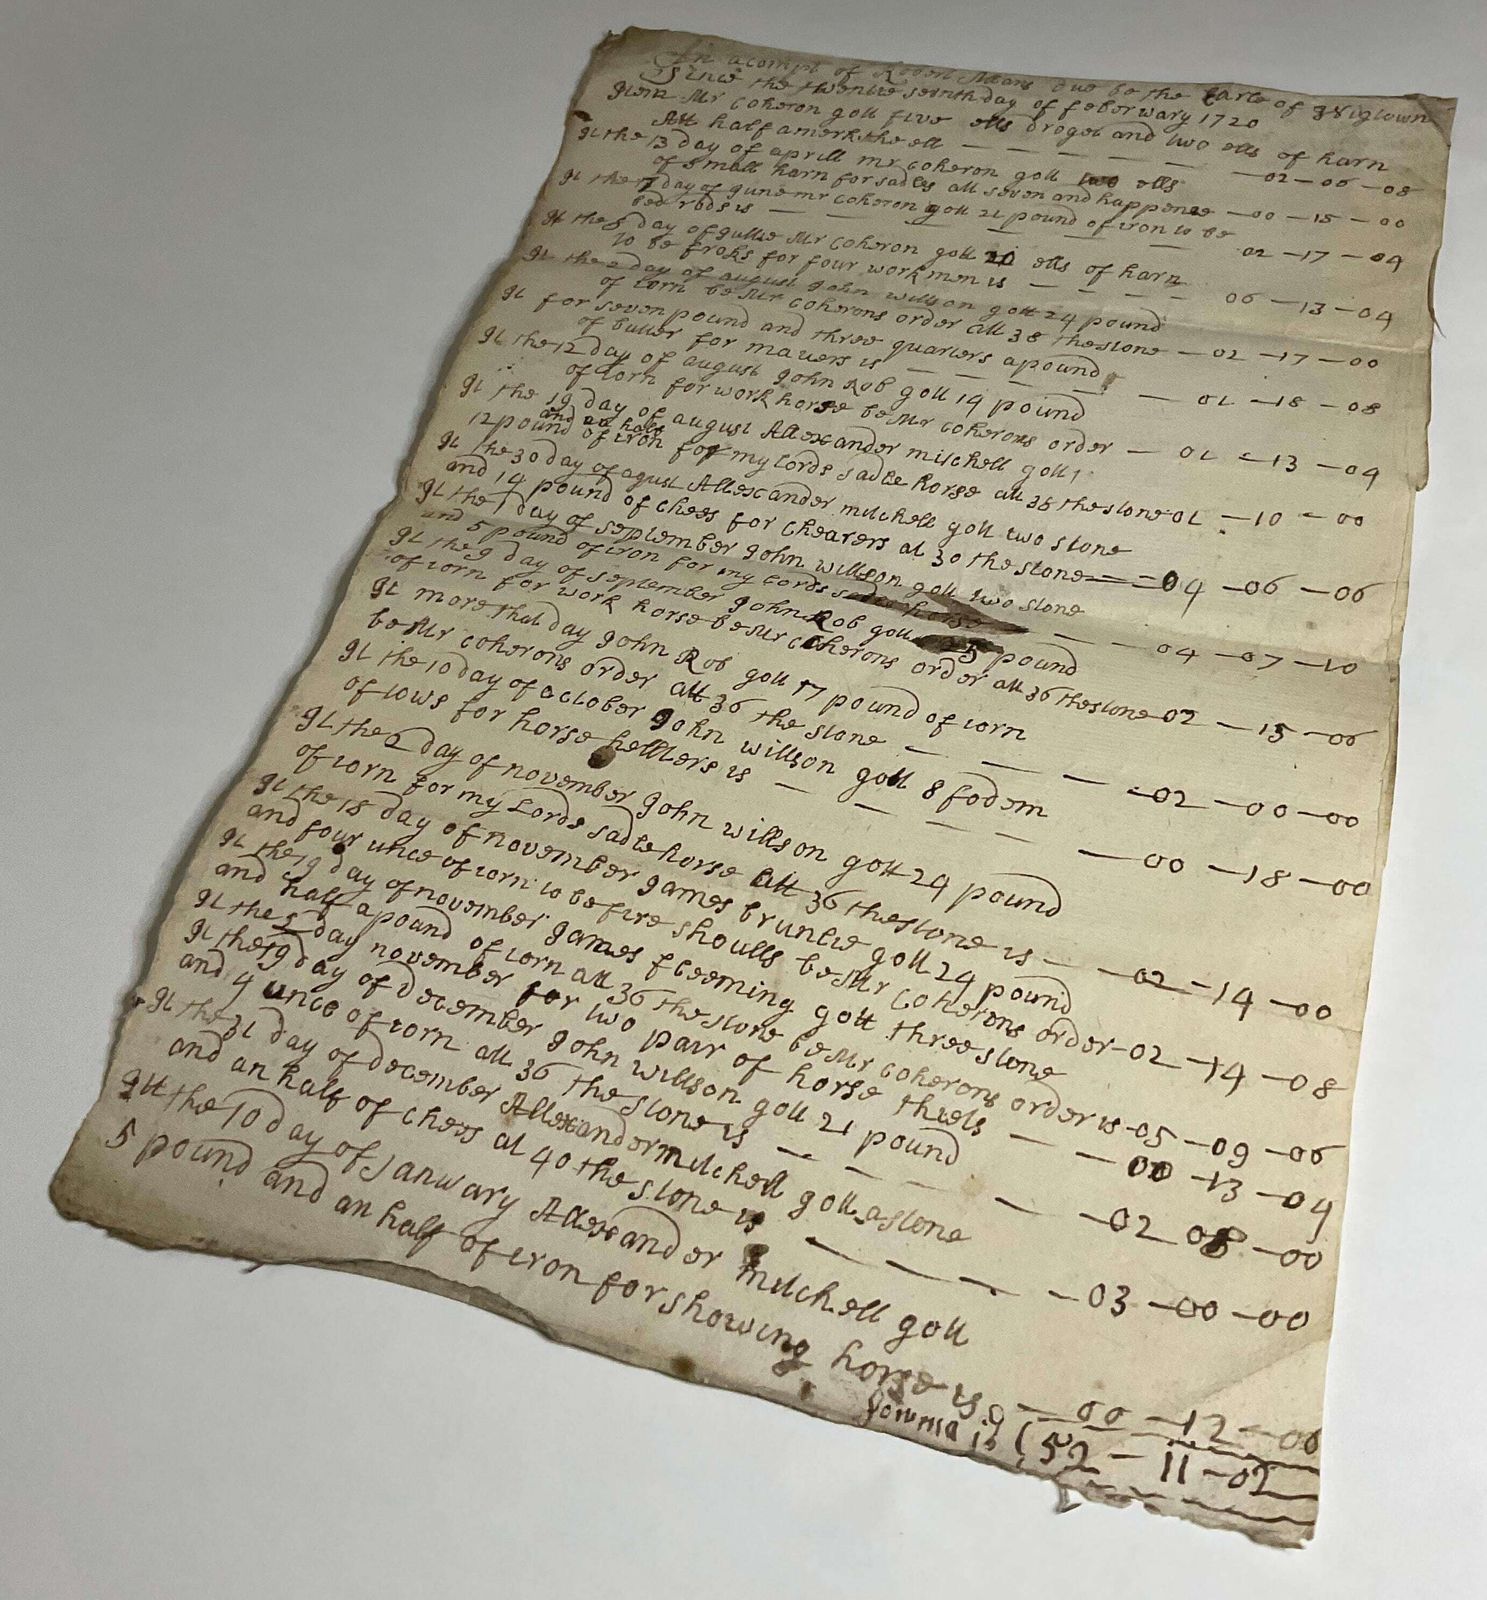 An acompt of Robert due be the Earle of Wigtown
Since the twentie sevnth day of feberwary 1720
Item Mr Coheron gott five ells droget and two ells of harn
Att half a merk the ell — — — — — 02 — 06 — 08
It the 13 day of aprill mr Coheron gott two ells
of small harn for sadles att seven and happenie — 00 — 15 — 00
It the 7 day of gune mr Coheron gott 21 pound of iron to be
bed rods is — — — — — 02 — 17 — 04
It the 8 day of gullie Mr Coheron gott 20 ells of harn
to be froks for four workmen is — — — — 06 — 13 — 04
It the 2 day of august John willson gott 24 pound
of iorn be Mr Coherons order att 38 the stone — 02 — 17 — 00
It for seven pound and three quarters a pound
of butter for mavers is — — — — — 01 — 18 — 08
It the 12 day of august John Rob gott 14 pound
of iorn for work horse be Mr Coherons order — 01 — 13 — 04
It the 19 day of august Allexander mitchell gott
12 pound and an half of iron for my lords sadle horse att 38 the stone 01 — 10 — 00
It the 30 day of agust Allexander mitchell gott two stone
and 14 pound of chees for shearers at 30 the stone — 04 — 06 — 06
It the 1 day of september John willson gott two stone
and 5 pound of iron for my lords sadle horse — — 04 — 07 — 10
It the 9 day of september John Rob gott 25 pound
of iorn for work horse be Mr Coherons order att 36 the stone 02 — 15 — 06
It more that day John Rob gott 17 pound of iorn
be Mr Coherons order att 36 the stone — — — 02 — 00 — 00
It the 10 day of october John willson gott 8 fodem
of tows for horse helters is — — — — — 00 — 18 — 00
It the 2 day of november John willson gott 24 pound
of iorn for my Lords sadle horse att 36 the stone is — 02 — 14 — 00
It the 18 day of november games bruntie gott 24 pound
and four unce of iorn to be fire shoulls be Mr Coherons order — 02 — 14 — 08
It the 19 day of november games fleeming gott three stone
and half a pound of iorn att 36 the stone be Mr Coherons order is — 05 — 09 — 06
It the 2 day november for two pair of horse thiels — — 00 — 13 — 04
It the 19 day of december John willson gott 21 pound
and 4 unce of iorn att 36 the stone is — — — — 02 08 — 00
It the 31 day of december Allexander mitchell gott a stone
and an half of chees at 40 the stone is — — — — 03 — 00 — 00
Itt the 10 day of Janwary Allexander mitchell gott
5 pound and an half of iron for showing horse is — 00 — 12 — 06
sowma is (52 — 11 — 02